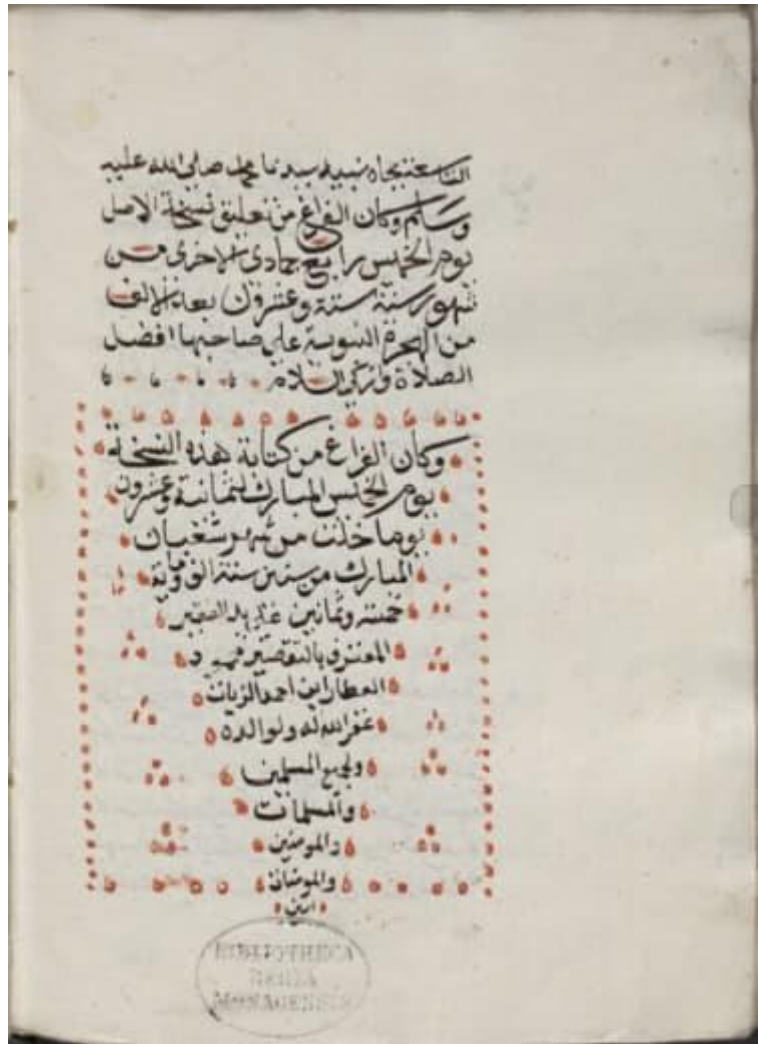 بجاه نبيه سيدنا محمد صلى الله عليه
وسلم وكان الفراغ من تعليق نسخة الاصل
يوم الخميس رابع جمادى الاخرى من
شهور سنة ستة وعشرون بعد الالف
من الهجرة النبوية على صاحبها افضل
الصلاة وازكى السلام
وكان الفراغ من كتابة هذه النسخة
يوم الخميس المبارك لثمانية وعشرون
يوما خلت من شهر شعبان
المبارك من سنة الف وماية
خمسة وثمانين على يد الفقير
المعترف بالتقصير
العطار ابن احمد الزيات
غفر الله له ولوالده
ولجميع المسلمين
والمسلمات
والمومنين
والمومنات
امين
BIBLIOTHECA
REGIA
MONACENSIS